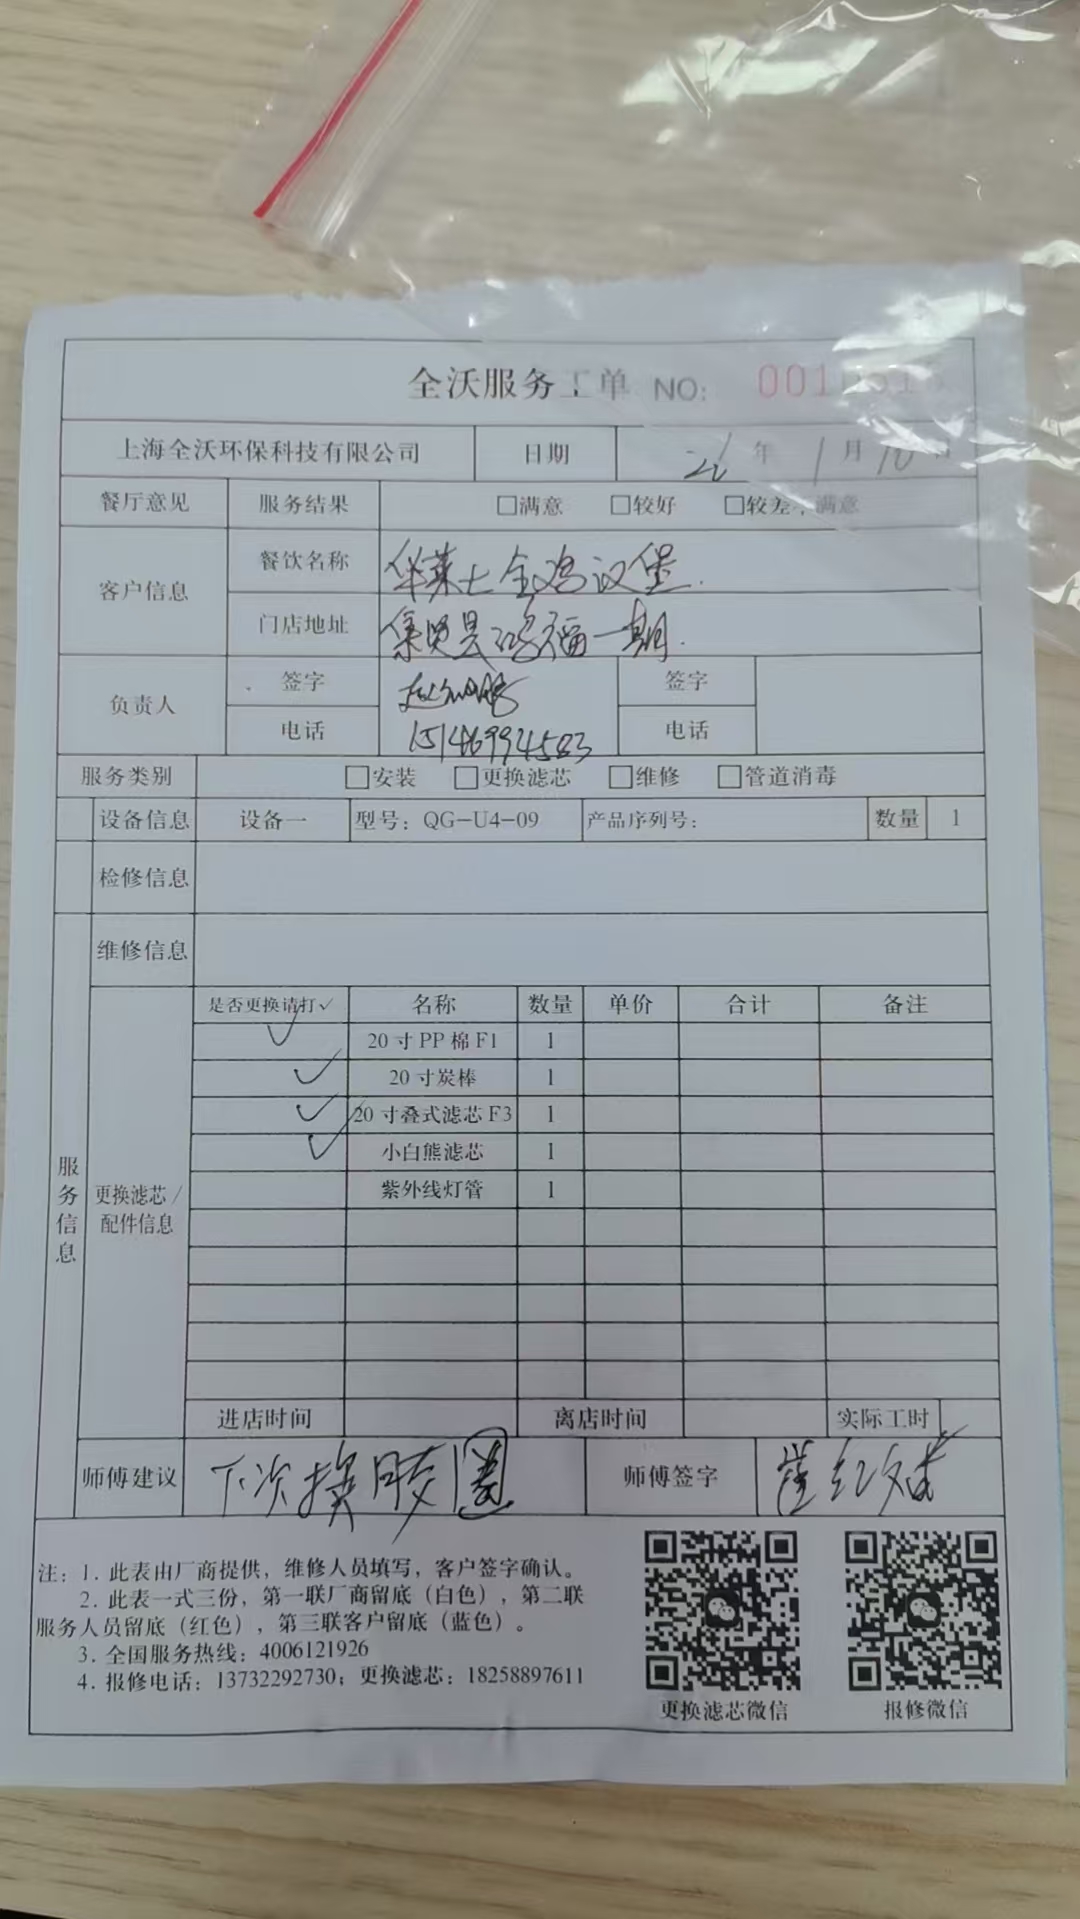 全沃服务工单 NO: 001
上海全沃环保科技有限公司 日期 年 1月10日
餐厅意见 服务结果 □满意 □较好 □较差 满意
客户信息 餐饮名称 华莱士全鸡汉堡.
门店地址 集贤县鸿福一期.
负责人 签字 签字
电话 15146994583 电话
服务类别 □安装 □更换滤芯 □维修 □管道消毒
设备信息 设备一 型号：QG-U4-09 产品序列号： 数量 1
检修信息
维修信息
服务信息
更换滤芯/配件信息
是否更换请打✓ 名称 数量 单价 合计 备注
✓ 20寸PP棉F1 1
✓ 20寸炭棒 1
✓ 20寸叠式滤芯F3 1
✓ 小白熊滤芯 1
紫外线灯管 1
进店时间 离店时间 实际工时
师傅建议 下次换胶圈 师傅签字
注：1. 此表由厂商提供，维修人员填写，客户签字确认。
2. 此表一式三份，第一联厂商留底（白色），第二联
服务人员留底（红色），第三联客户留底（蓝色）。
3. 全国服务热线：4006121926
4. 报修电话：13732292730；更换滤芯：18258897611
更换滤芯微信 报修微信